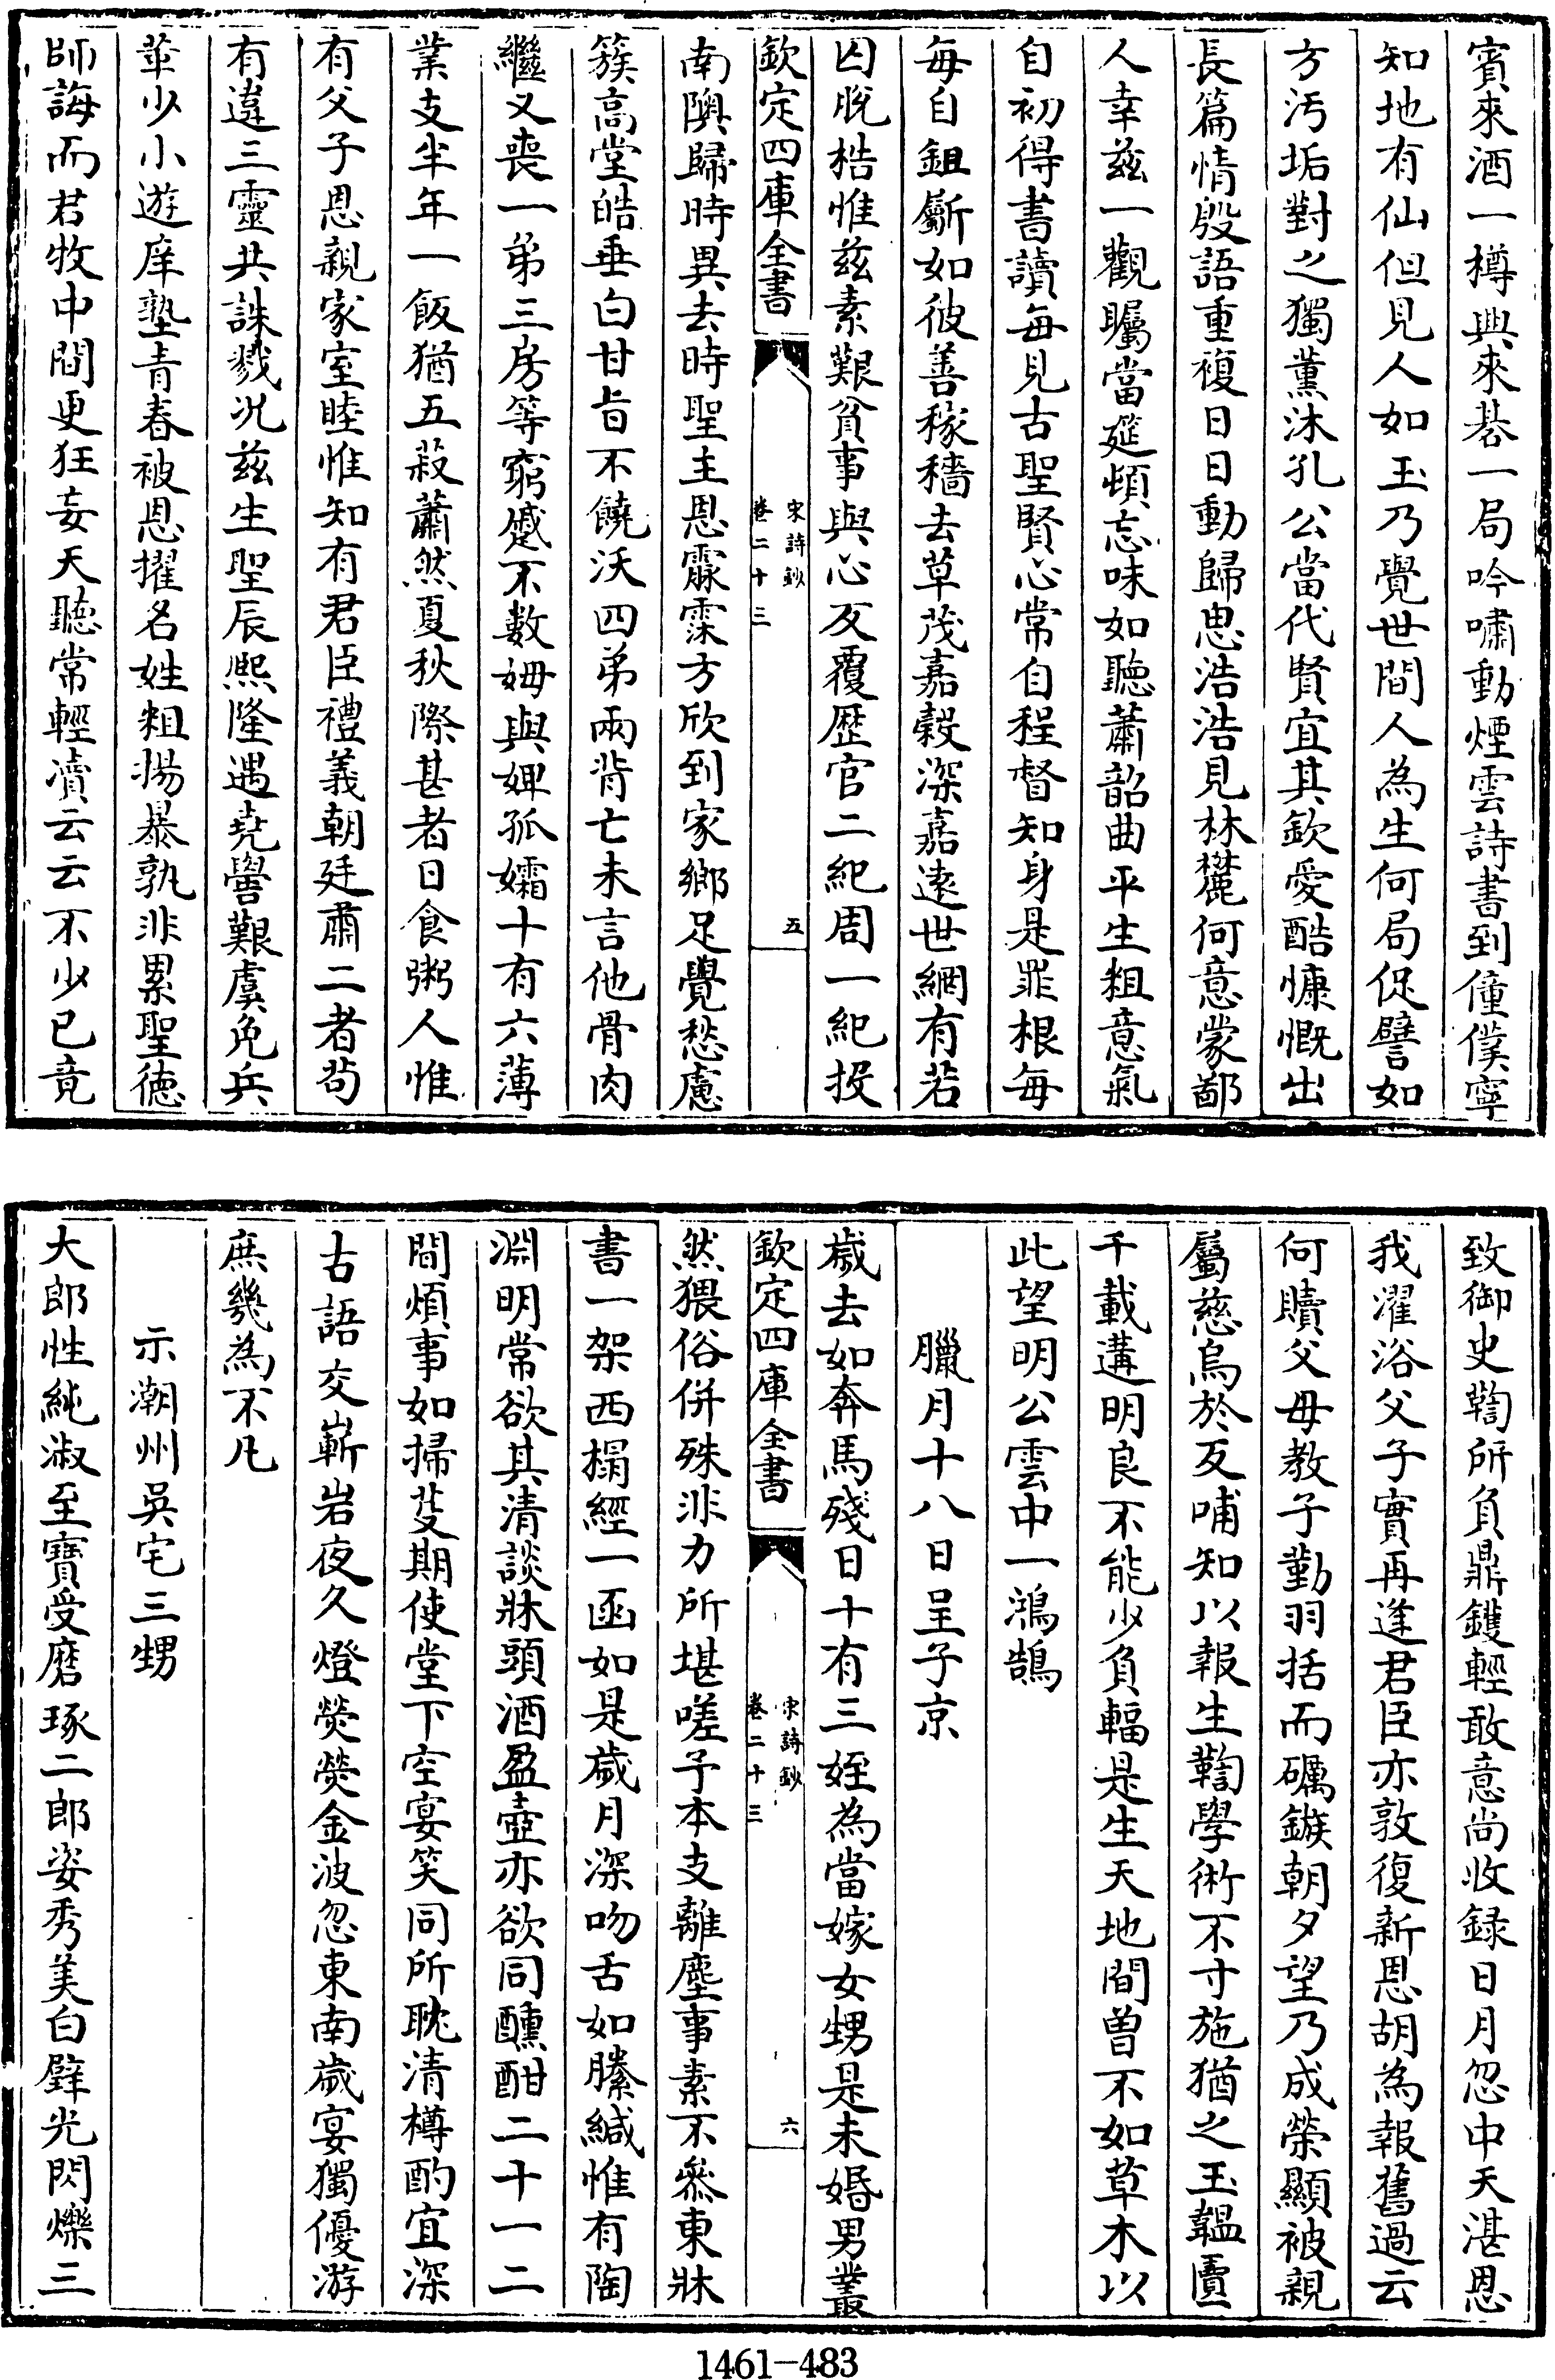 賓來酒一樽興來碁一局吟嘯動煙雲詩書到僮僕寧
知地有仙但見人如玉乃覺世間人為生何局促譬如
方汚垢對之獨薰沐孔公當代賢宜其欽愛酷慷慨出
長篇情殷語重複日日動歸思浩浩見林麓何意蒙鄙
人幸兹一觀矚當筵頓忘味如聽蕭韶曲平生粗意氣
自初得書讀每見古聖賢心常自程督知身是罪根每
每自鉏斸如彼善稼穡去草茂嘉穀深嘉逺世網有若
囚脱梏惟兹素艱貧事與心反覆歴官二紀周一紀投
欽定四庫全書
宋詩鈔
卷二十三
五
南陬歸時異去時聖主恩霢霂方欣到家鄉足覺愁慮
簇高堂皓垂白甘㫖不饒沃四弟兩背亡未言他骨肉
繼又喪一弟三房等窮蹙不數姆與婢孤孀十有六薄
業支半年一飯猶五菽蕭然夏秋際甚者日食粥人惟
有父子恩親家室睦惟知有君臣禮義朝廷肅二者茍
有違三靈共誅戮况兹生聖辰熙隆遇堯嚳艱虞免兵
革少小遊庠塾青春被恩擢名姓粗揚暴孰非累聖德
師誨而君牧中間更狂妄天聽常輕瀆云云不少已竟
致御史鞫所負鼎鑊輕敢意尚收録日月忽中天湛恩
我濯浴父子實再逢君臣亦敦復新恩胡為報舊過云
何贖父母教子勤羽括而礪鏃朝夕望乃成榮顯被親
屬慈烏於反哺知以報生鞫學術不寸施猶之玉韞匵
千載遘明良不能少負輻是生天地間曾不如草木以
此望明公雲中一鴻鵠
臘月十八日呈子京
歳去如奔馬殘日十有三姪為當嫁女甥是未婚男叢
欽定四庫全書
宋詩鈔
卷二十三
六
然猥俗併殊非力所堪嗟予本支離塵事素不叅東牀
書一架西榻經一函如是歳月深吻舌如縢緘惟有陶
淵明常欲其清談牀頭酒盈壺亦欲同醺酣二十一二
間煩事如掃芟期使堂下空宴笑同所耽清樽酌宜深
古語交嶄岩夜久燈熒熒金波忽東南歳宴獨優游
庶幾為不凡
示潮州吳宅三甥
大郎性純淑至寶受磨琢二郎姿秀美白璧光閃爍三
1461-483